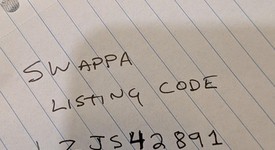 SWAPPA
LISTING CODE
JS42891